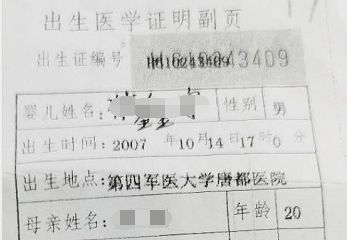 出生医学证明副页
出生证编号 H610243409
婴儿姓名: 性别 男
出生时间: 2007 年 10 月 14 日 17 时 0 分
出生地点:第四军医大学唐都医院
母亲姓名: 年龄 20